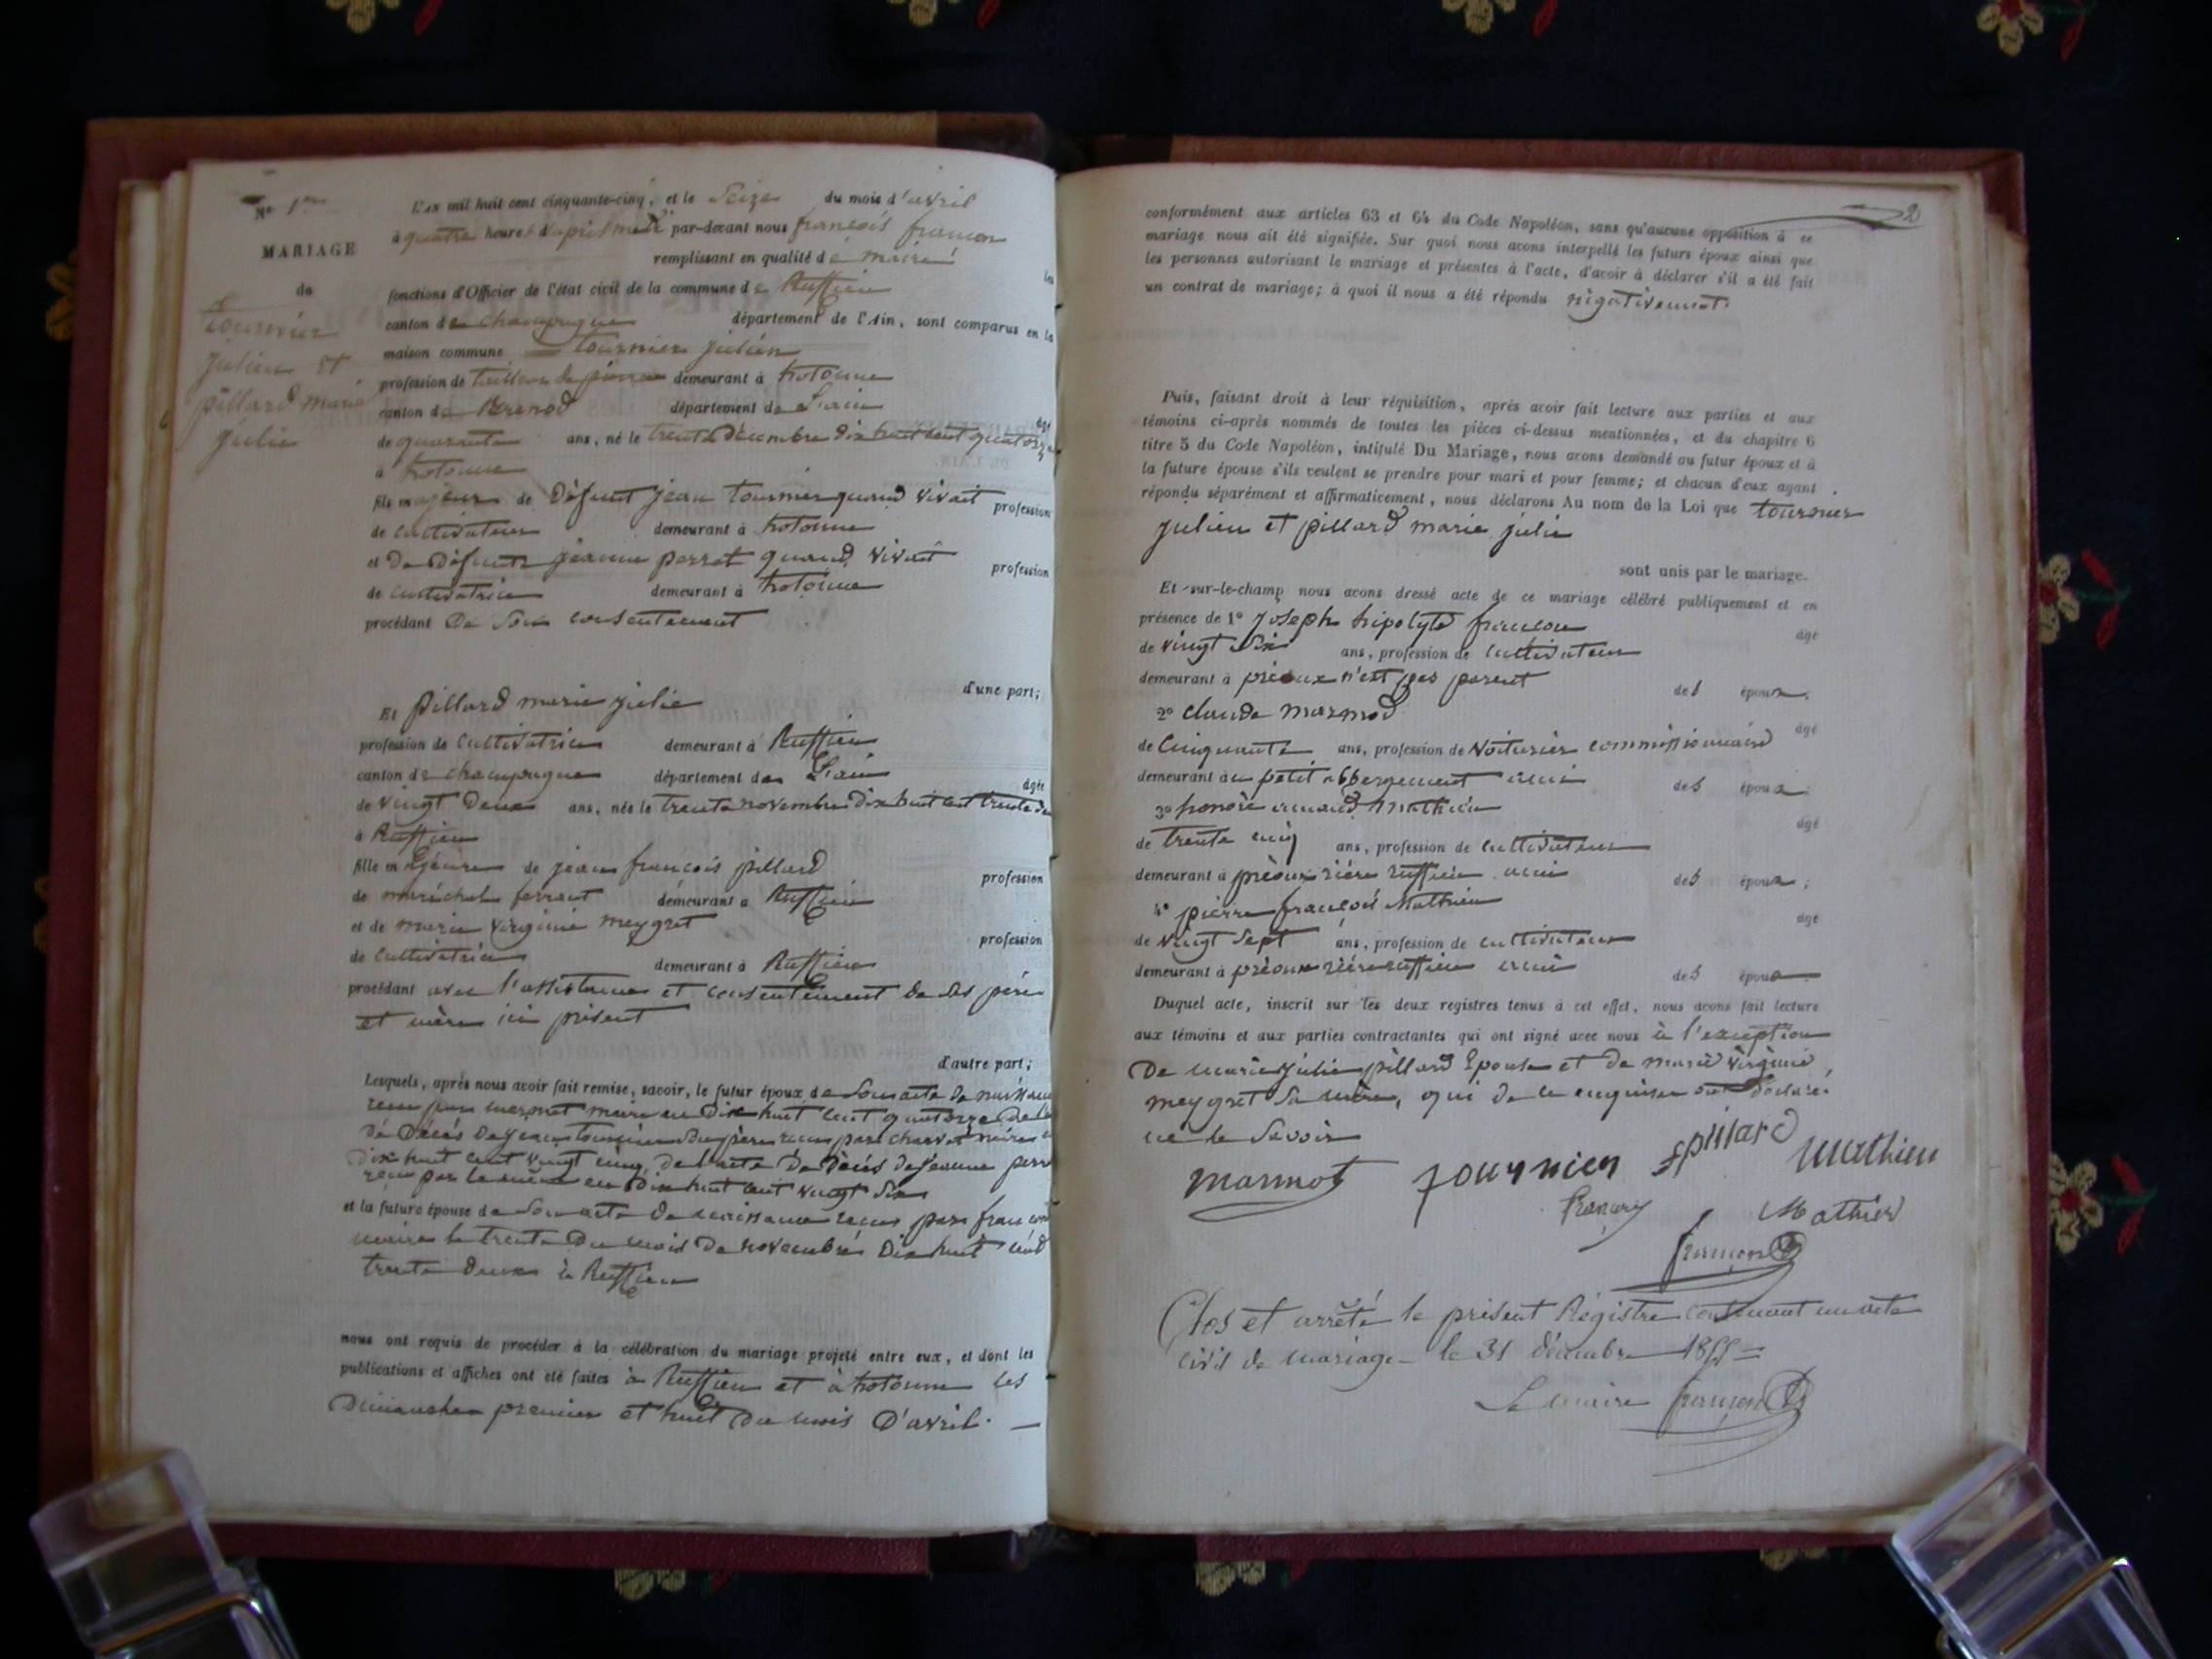 N° 1er
MARIAGE
de
tournier
julien et
pillard marie
julie
L'AN mil huit cent cinquante-cinq, et le Seize du mois d'avril
à quatre heures d'après midi par-devant nous françois françon
remplissant en qualité de maire les
fonctions d'Officier de l'état civil de la commune de Ruffieu
canton de champagne département de l'Ain, sont comparus en la
maison commune tournier julien
profession de tailleur de pierre demeurant à hotonne
canton de Brenod département de L'ain âgé
de quarante ans, né le trente décembre dix huit cent quatorze
à hotonne
fils majeur de Défunt jean tournier quand vivait profession
de cultivateur demeurant à hotonne
et de Défunte jeanne perret quand vivait profession
de cultivatrice demeurant à hotonne
procédant De Son consentement
d'une part;
Et pillard marie julie
profession de cultivatrice demeurant à Ruffieu
canton de champagne département de L'ain âgée
de vingt Deux ans, née le trente novembre Dix huit cent trente de
à Ruffieu
fille majeure de jean françois pillard profession
de maréchal ferrant demeurant à Ruffieu
et de marie virginie meygret profession
de cultivatrice demeurant à Ruffieu
procédant avec l'assistance et consentement de ses père
et mère ici présent
d'autre part;
Lesquels, après nous avoir fait remise, savoir, le futur époux de Son acte De naissance
reçu par mermet maire en Dix huit cent quatorze De
de Décès De jean tournier Son père reçu par charvet maire
Dix huit cent vingt cinq, de l'acte De Décès de jeanne perr
reçu par le même en Dix huit cent vingt Six
et la future épouse de Son acte De naissance reçu par françon
maire le trente Du mois De novembre Dix huit cent
trente deux à Ruffieu
nous ont requis de procéder à la célébration du mariage projeté entre eux, et dont les
publications et affiches ont été faites à Ruffieu et à hotonne les
Dimanches premier et huit Du mois D'avril.
2
conformément aux articles 63 et 64 du Code Napoléon, sans qu'aucune opposition à ce
mariage nous ait été signifiée. Sur quoi nous avons interpellé les futurs époux ainsi que
les personnes autorisant le mariage et présentes à l'acte, d'avoir à déclarer s'il a été fait
un contrat de mariage; à quoi il nous a été répondu négativement.
Puis, faisant droit à leur réquisition, après avoir fait lecture aux parties et aux
témoins ci-après nommés de toutes les pièces ci-dessus mentionnées, et du chapitre 6
titre 5 du Code Napoléon, intitulé Du Mariage, nous avons demandé au futur époux et à
la future épouse s'ils veulent se prendre pour mari et pour femme; et chacun d'eux ayant
répondu séparément et affirmativement, nous déclarons Au nom de la Loi que tournier
julien et pillard marie julie
sont unis par le mariage.
Et sur-le-champ nous avons dressé acte de ce mariage célébré publiquement et en
présence de 1° joseph hipolyte françon âgé
de vingt Six ans, profession de cultivateur
demeurant à préoux n'est pas parent des époux,
2° claude marmod
de Cinquante ans, profession de Voiturier commissionnaire âgé
demeurant au petit abbergement ami des époux;
3° honoré Mathieu
de trente cinq ans, profession de cultivateur âgé
demeurant à préoux rière ruffieu ami des époux;
4° pierre françois Mathieu
de vingt Sept ans, profession de cultivateur âgé
demeurant à préoux rière ruffieu ami des époux
Duquel acte, inscrit sur les deux registres tenus à cet effet, nous avons fait lecture
aux témoins et aux parties contractantes qui ont signé avec nous à l'exception
De marie julie pillard Epouse et de marie virginie
meygret Sa mère, qui de ce enquises ont déclaré
ne le Savoir
marmot tournier pillard Mathieu
françon Mathieu
françon
Clos et arrêté le présent Régistre contenant un acte
civil de mariage le 31 décembre 1855
Le maire françon